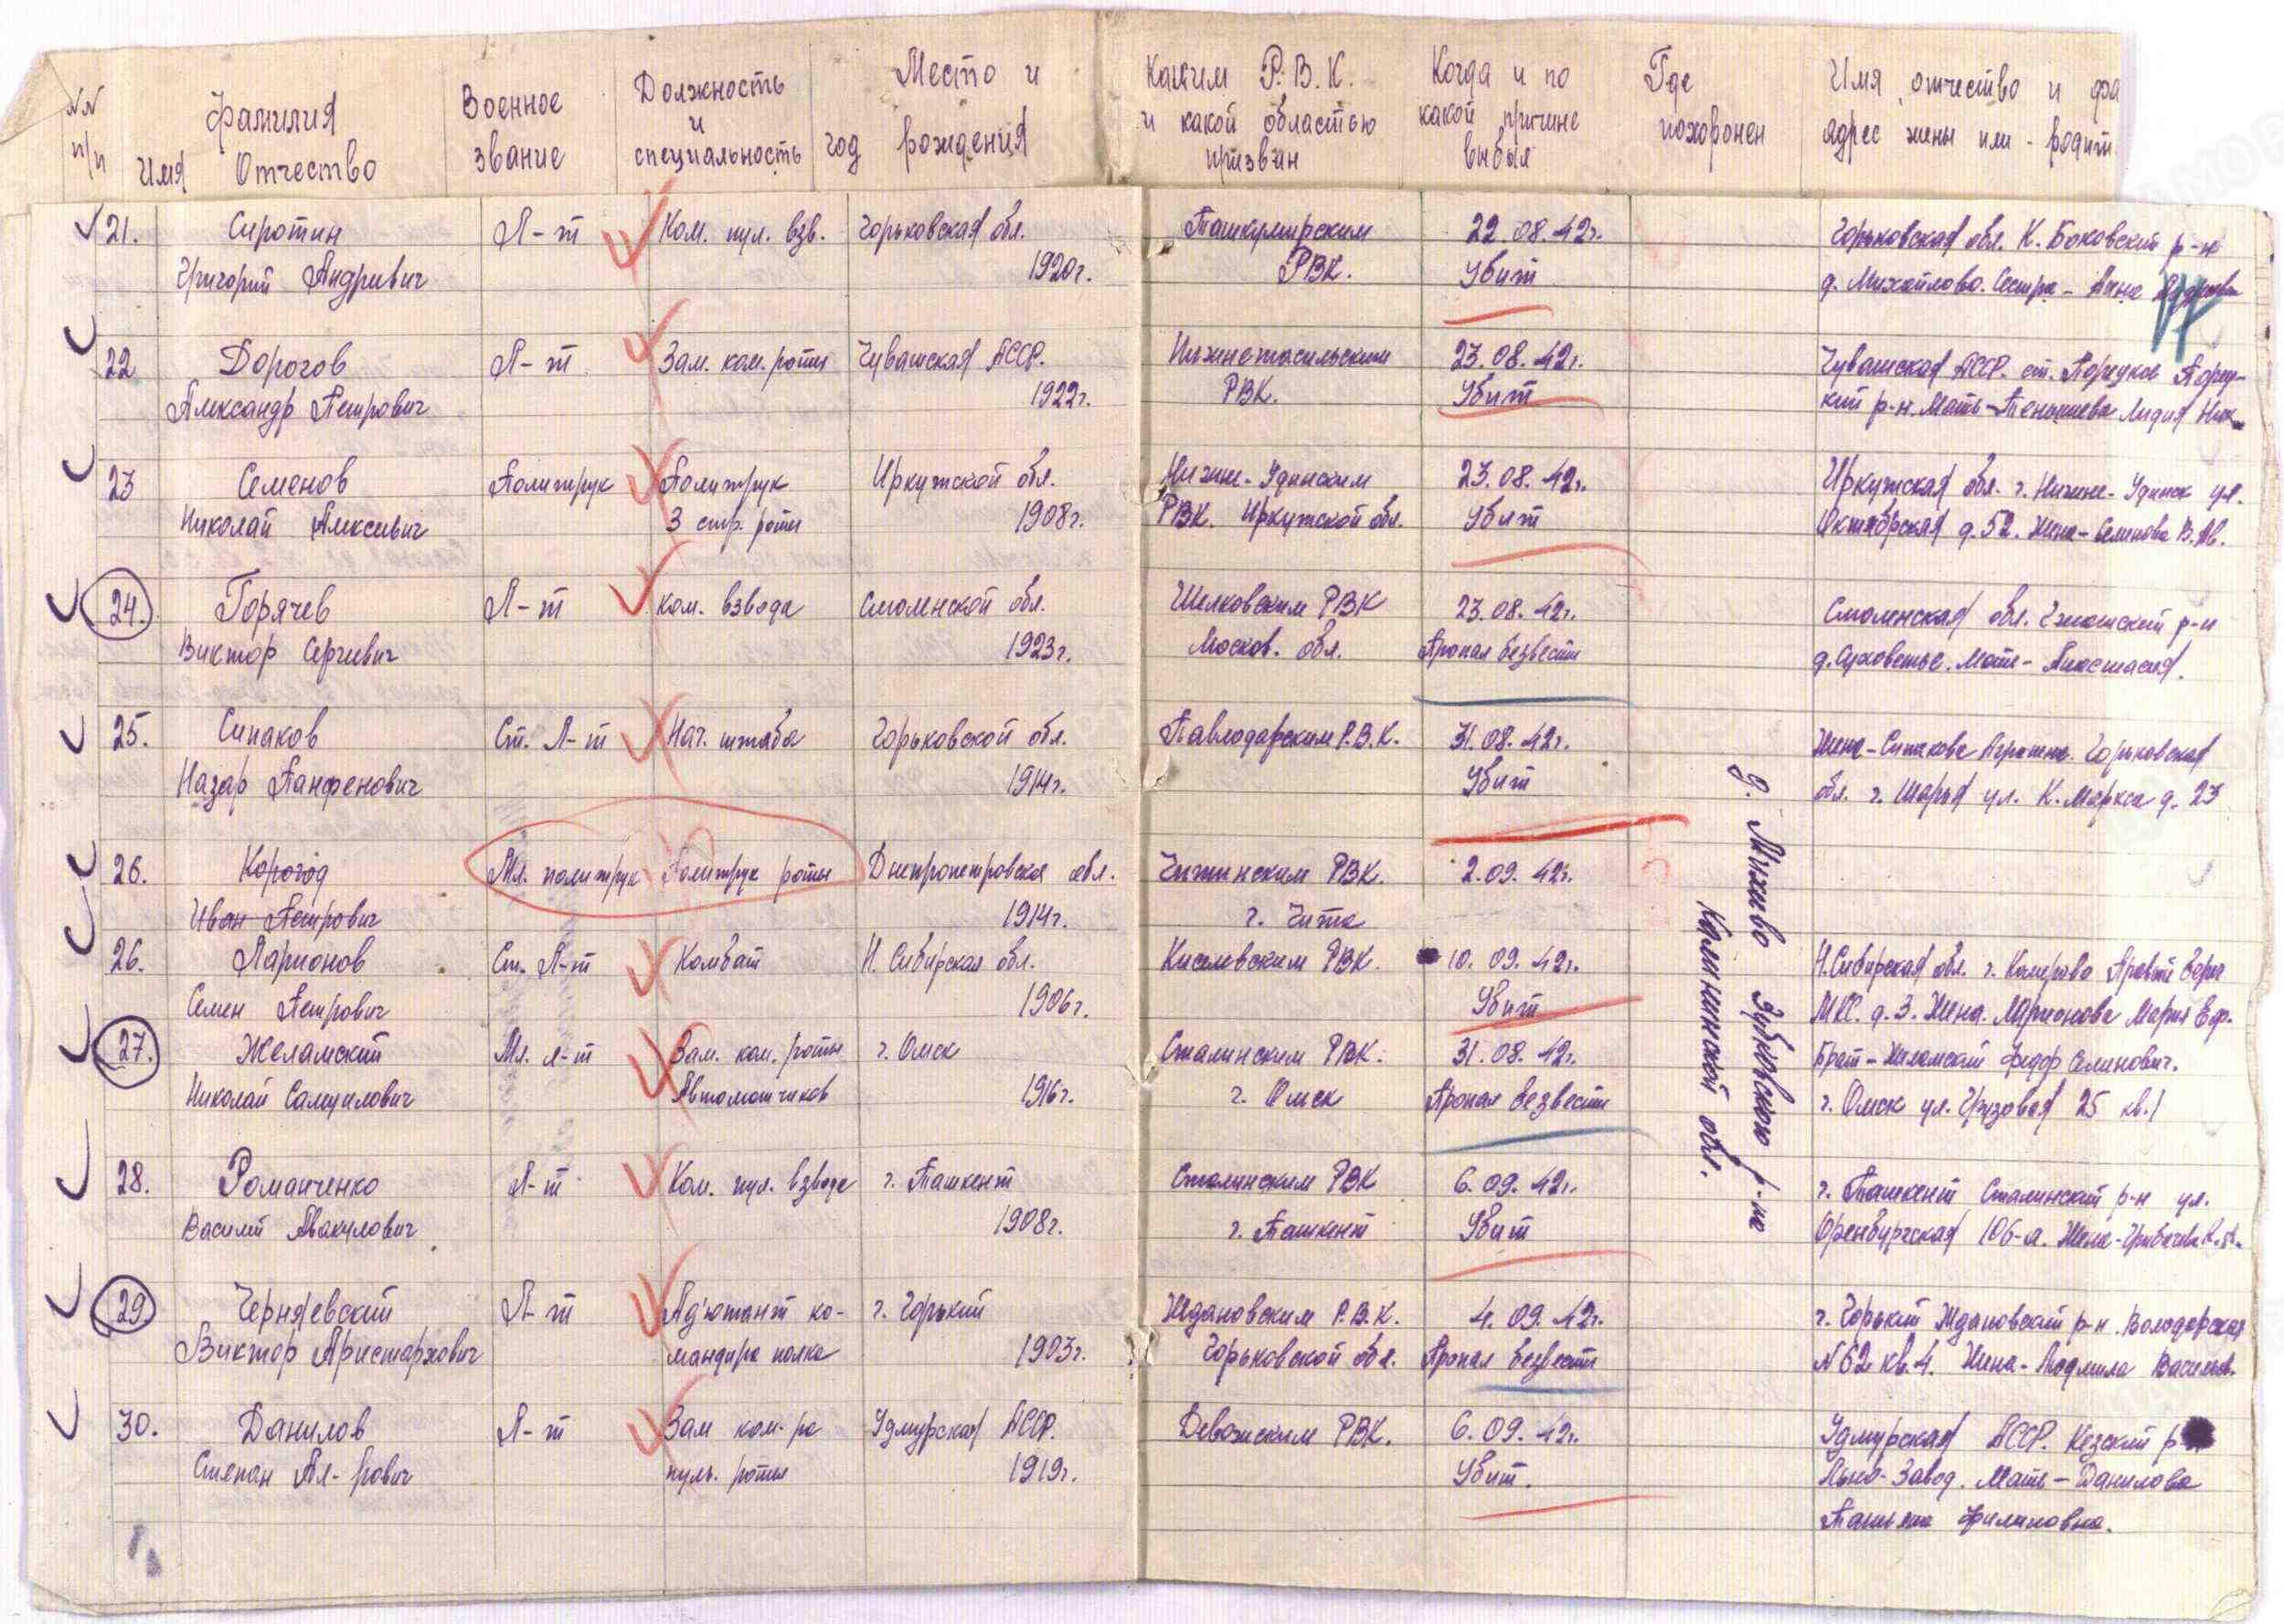 NN п/п
Фамилия Имя Отчество
Военное звание
Должность и специальность
Место и год рождения
Каким Р.В.К. и какой областью призван
Когда и по какой причине выбыл
Где похоронен
Имя, отчество и фа
адрес жены или - родит.
21. Сиротин Л-т Ком. пул. взв. Горьковская обл. Ташкумирским 22.08.42г. Горьковская обл. К. Баковский р-н
Григорий Андривич 1920г. РВК. Убит д. Михайлово. Сестра - Анна
22 Дорогов Л-т Зам. ком. роты Чувашская АССР. Нижнетагильским 23.08.42г. Чувашская АССР. ст. Порецков Порец-
Александр Петрович 1922г. РВК. Убит кий р-н. Мать - Лидия Ник
23 Семенов Политрук Политрук Иркутской обл. Нижне-Удинским 23.08.42г. Иркутская обл. г. Нижне-Удинск ул.
Николай Алксеевич 3 стр. роты 1908г. РВК. Иркутской обл. Убит Октябрская д.52. Жена - Семенова В.Ав.
24. Горячев Л-т Ком. взвода Смоленской обл. Щелковским РВК 23.08.42г. Смоленская обл. р-н
Виктор Сергеевич 1923г. Москов. обл. Пропал безвести д. Суховетье. Мать - Анастасия.
25. Сипаков Ст. Л-т Нач. штаба Горьковской обл. Павлодарским Р.В.К. 31.08.42г. Жена - Сипакова Агропена. Горьковская
Назар Панфенович 1914г. Убит обл. г. Шарья ул. К. Маркса д. 23
26. Корогод Мл. политрук Политрук роты Днепропетровска обл. Читинским РВК. 2.09.42г.
Иван Петрович 1914г. г. Чита
26. Ларионов Ст. Л-т Комбат Н. Сибирская обл. Киселевским РВК. 10.09.42г. Н.Сибирская обл. г. Кемерово
Семен Петрович 1906г. Убит д. 3. Жена. Ларионова Мария Еф.
27. Желамский Мл. л-т Зам. ком. роты г. Омск Сталинским РВК. 31.08.42г. Брат - Желамский Федор Семенович.
Николай Самуилович Автоматчиков 1916г. г. Омск Пропал безвести г. Омск ул. Грузовая 25 кв.1
28. Романченко Л-т Ком. пул. взвода г. Ташкент Сталинским РВК 6.09.42г. г. Ташкент Сталинский р-н ул.
Василий Авакулович 1908г. г. Ташкент Убит Оренбургская 106-а. Жена -
29 Черняевский Л-т Ад'ютант ко- г. Горький Ждановским Р.В.К. 4.09.42г. г. Горький Ждановский р-н. Володарская
Виктор Аристархович мандира полка 1903г. Горьковской обл. Пропал безвести N 62 кв. 4. Жена - Людмила Васильев.
30. Данилов Л-т Зам ком-ра Удмурская АССР. Девожским РВК. 6.09.42г. Удмурская АССР. Кезский р-н
Степан Ал-рович пуль. роты 1919г. Убит. Льно-Завод. Мать - Данилова
Татьяна Филиповна.
д. Михеево Зубцовского р-на
Калининской обл.